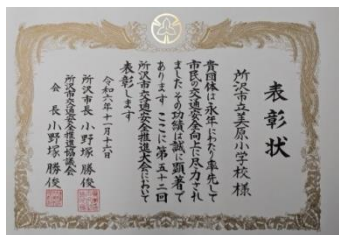 表彰状
所沢市立美原小学校 様
貴団体は永年にわたり率先して
市民の交通安全向上に尽力され
ましたその功績は誠に顕著で
あります ここに第五十二回
所沢市交通安全推進大会において
表彰します
令和六年十一月十六日
所沢市長 小野塚 勝俊
所沢市交通安全推進協議会
会長 小野塚 勝俊